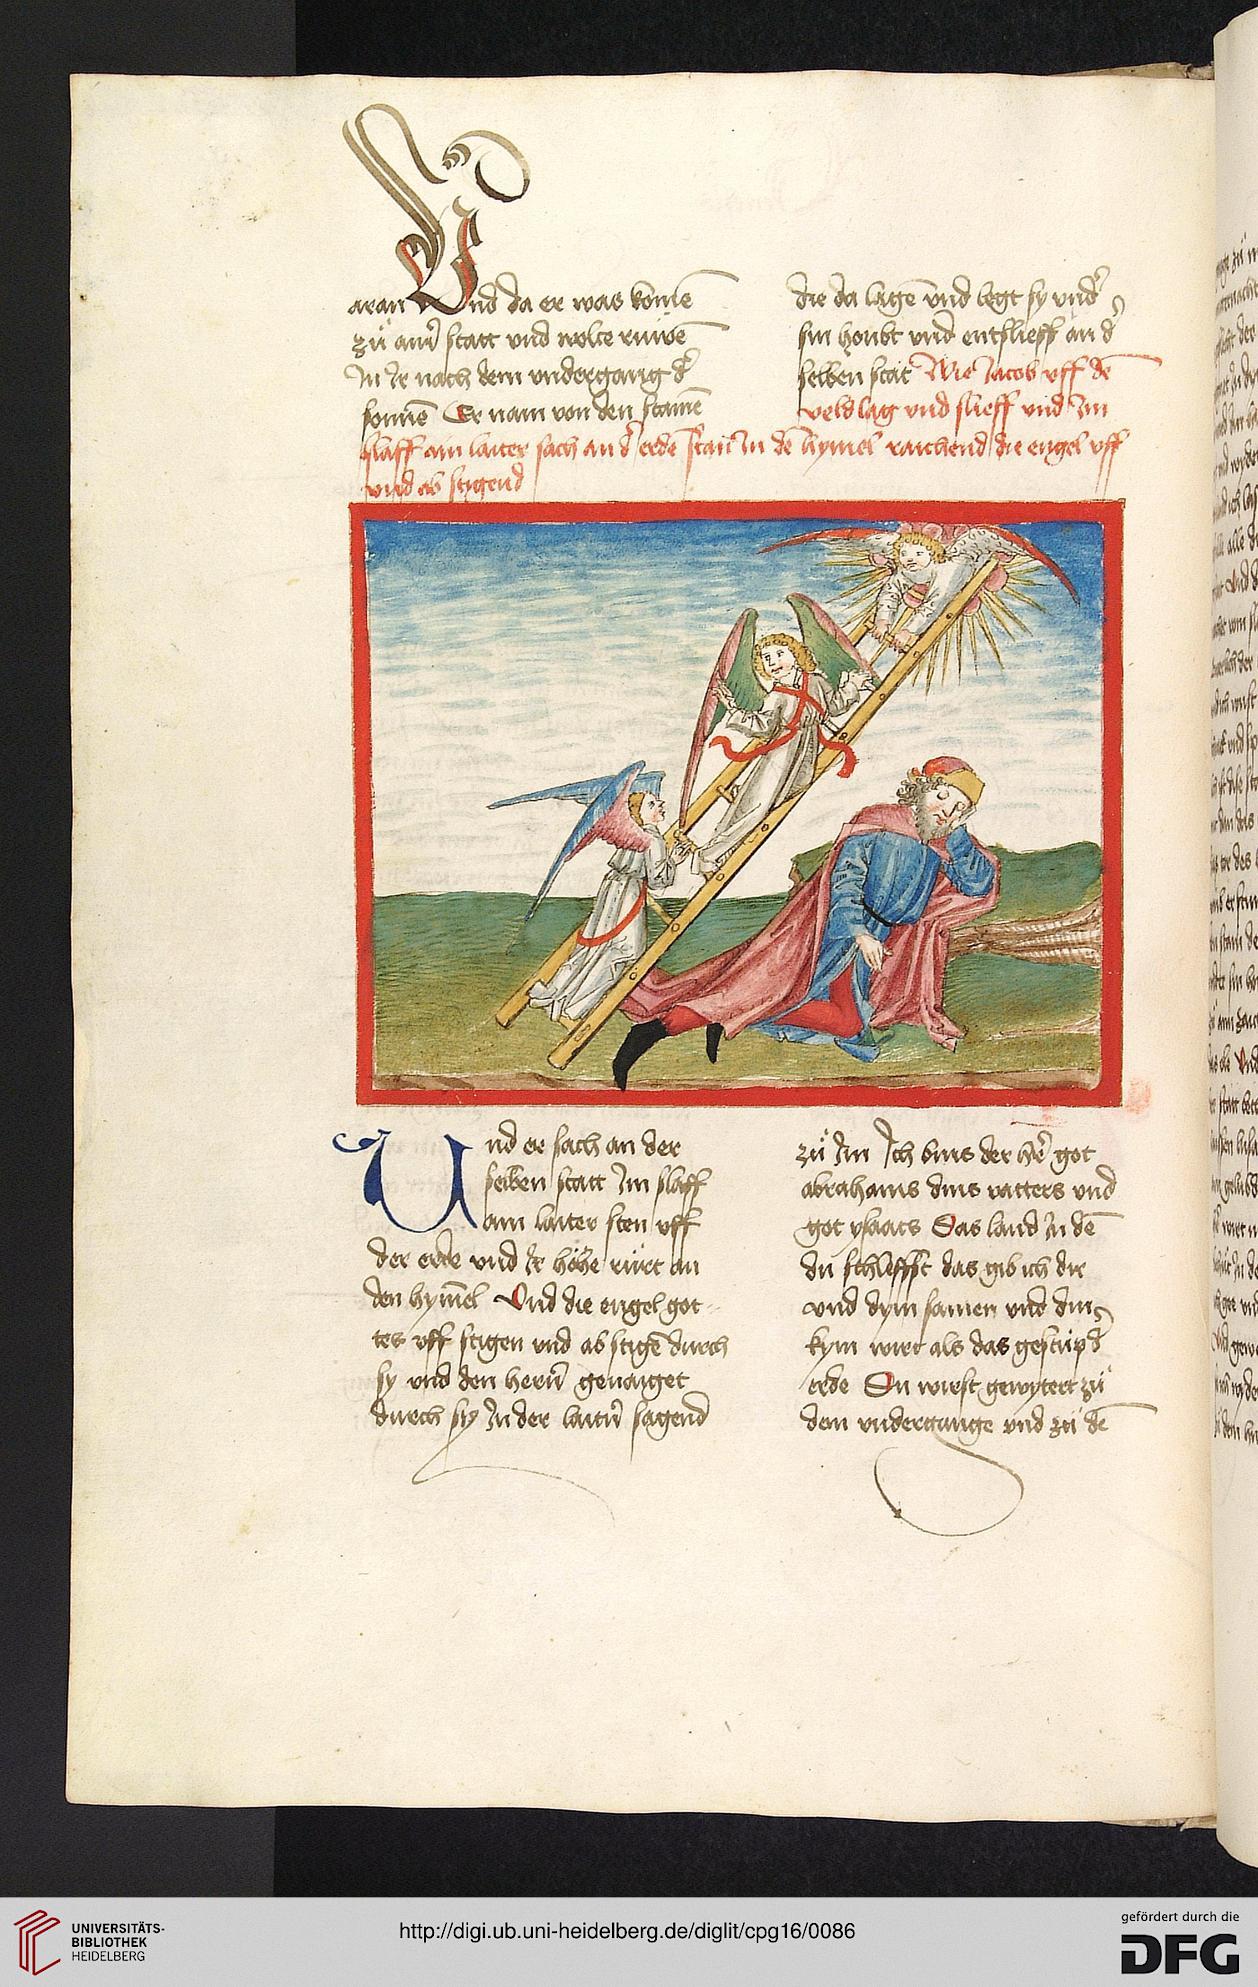 aran Und da er was komē
zů ainr̄ statt und wolte ruwē
In Ir nach dem undergang d'
sonnē Er nam von den stainē
die da lagē und legt sy und'
sin houbt und entslieff an d'
selben stat Wie Jacob uff dē
veld lag und slieff und Im
slaff ain laiter sach an d' erde stan In dē hymel raichend die engel uff
und ab stigend
Und er sach an der
selben statt Im slaff
ain laiter sten uff
der erde und Ir höhe rürt an
den hym̄el Und die engel got-
tes uff stigen und ab stigē durch
sy und den herrn̄ genaiget
durch sy In der laitrn̄ sagend
zů Im Ich bins der her̄ got
abrahams dins vatters und
got ysaacs Das land In dē
du schleffst das gib ich dir
und dym samen und din
kym wirt als das gestüp d'
erde Du wirst gewytert zů
dem undergange und zů dē
UNIVERSITÄTS-
BIBLIOTHEK
HEIDELBERG
http://digi.ub.uni-heidelberg.de/diglit/cpg16/0086
gefördert durch die
DFG